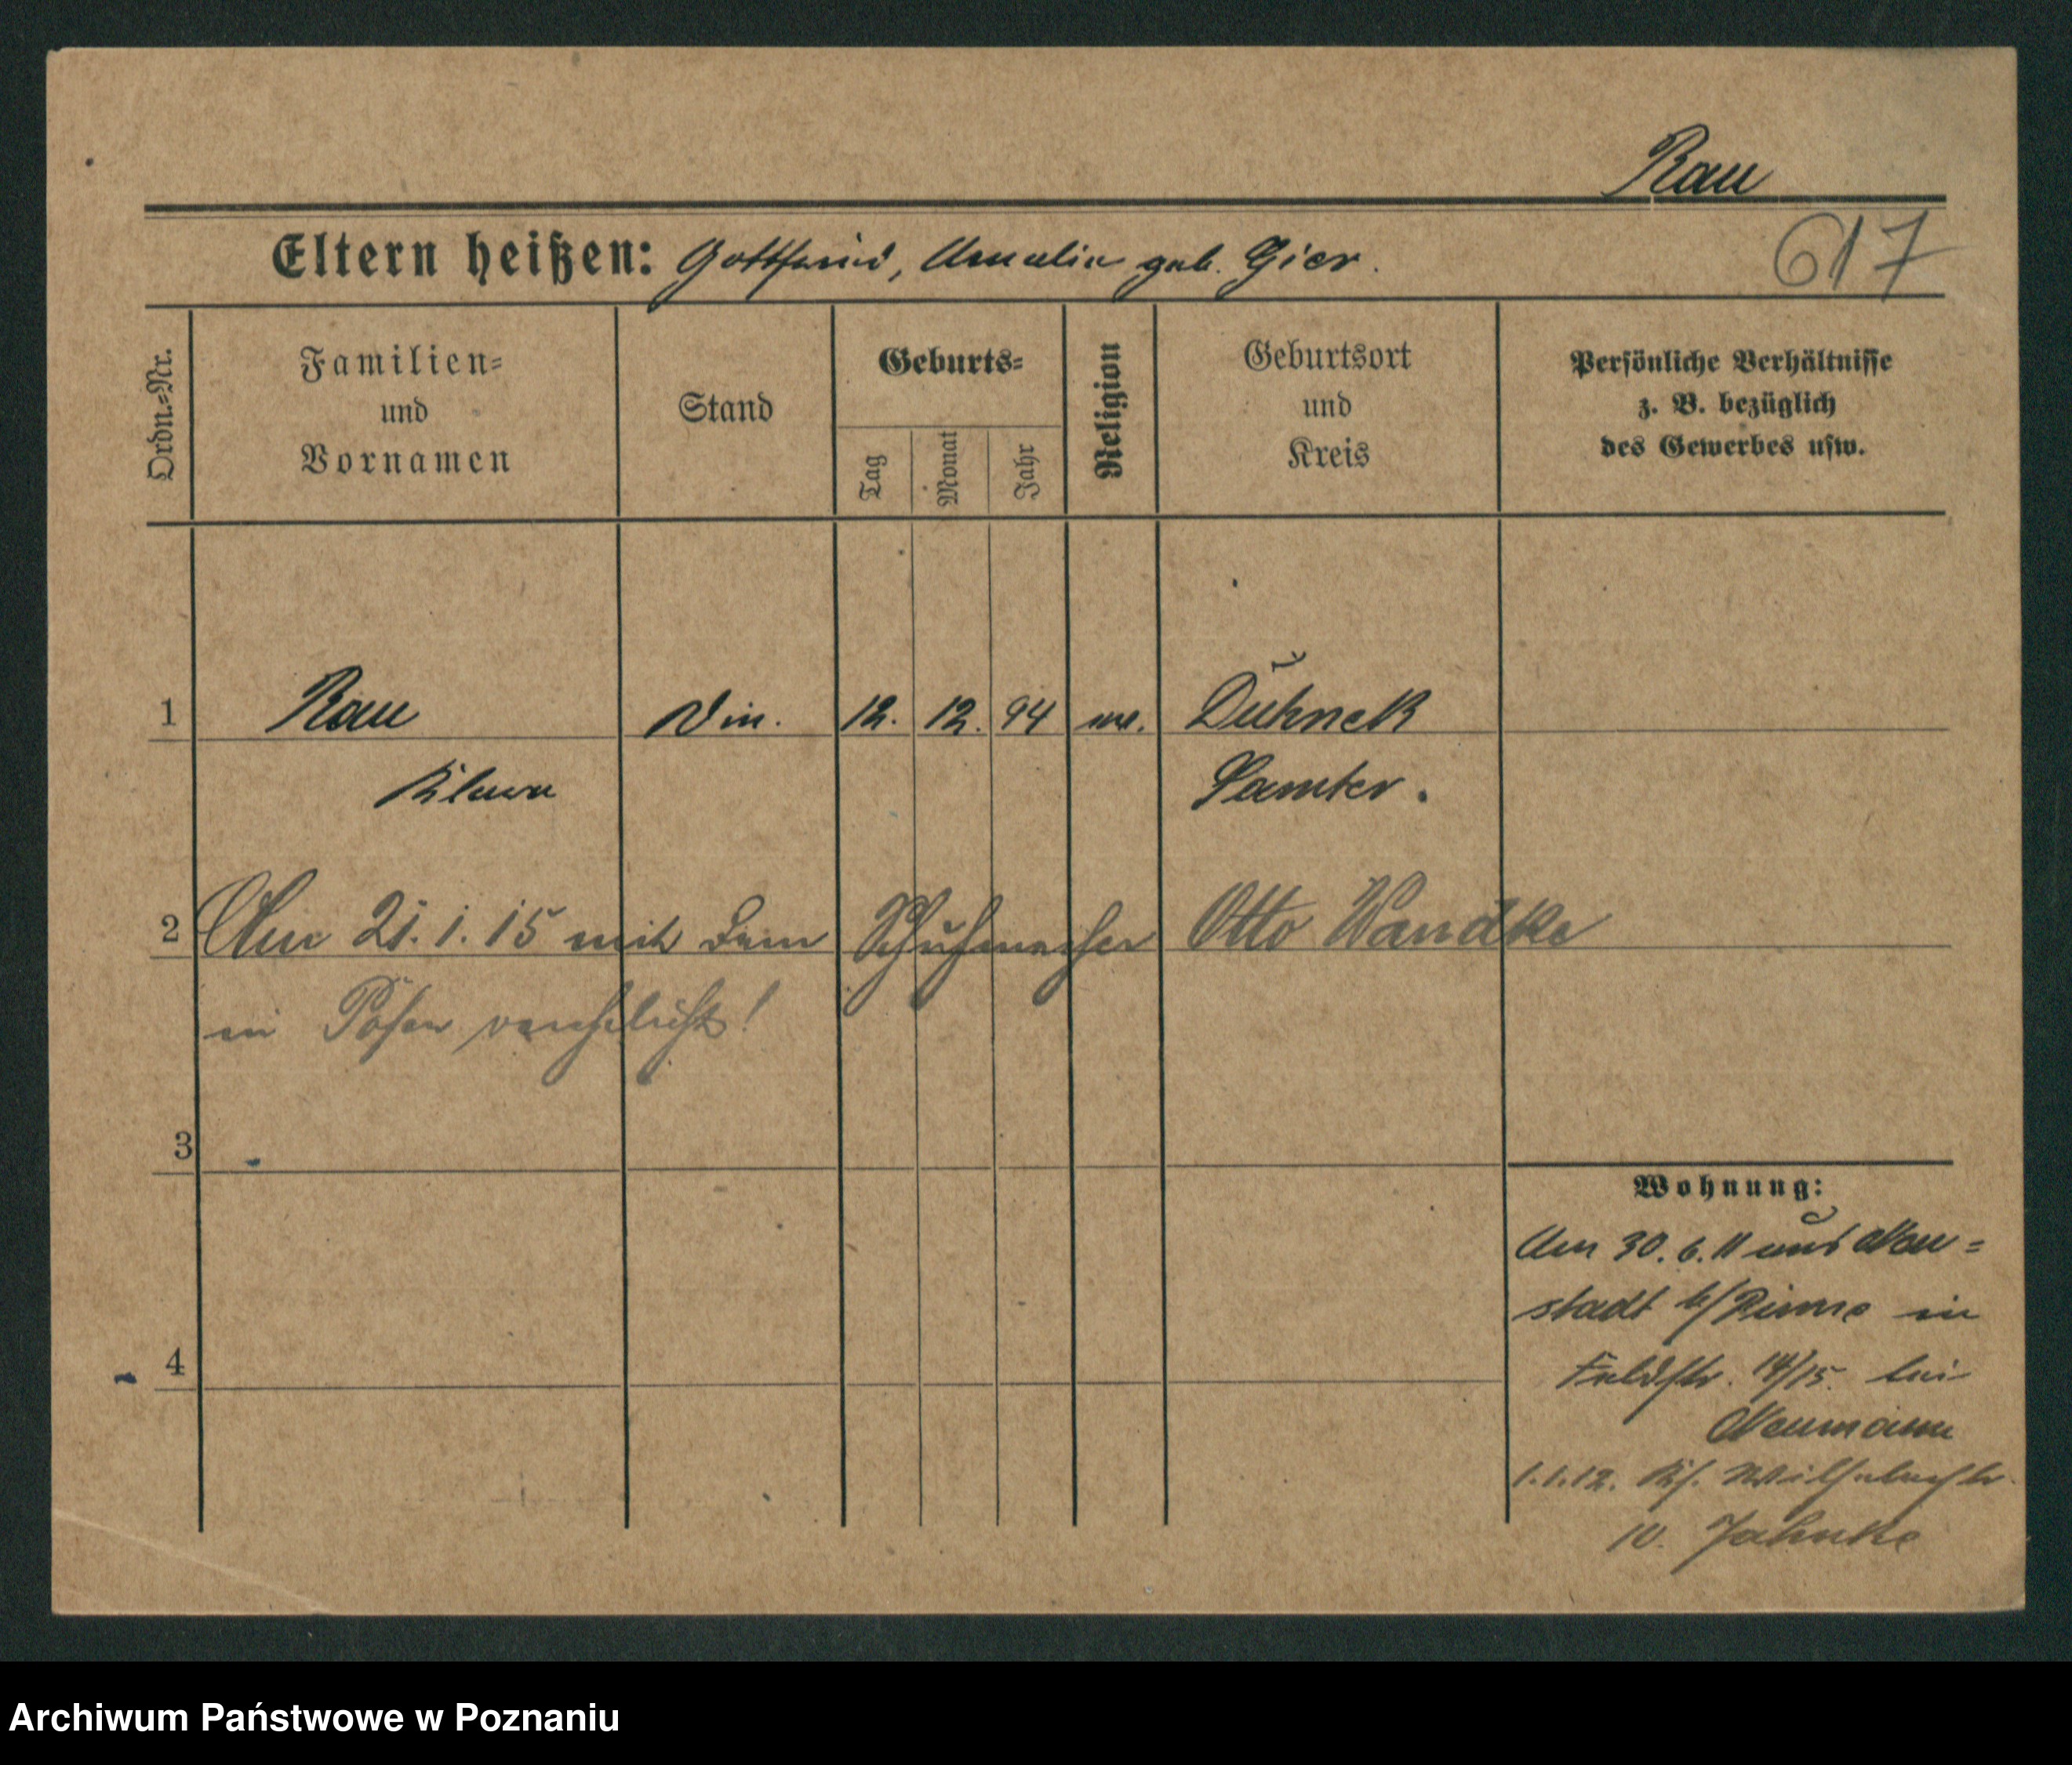 Rau
617
Eltern heißen: Gottfried, Amalie geb. Gier.
Ordn.-Nr.
Familien-
und
Vornamen
Stand
Geburts-
Tag
Monat
Jahr
Religion
Geburtsort
und
Kreis
Persönliche Verhältnisse
z. B. bezüglich
des Gewerbes usw.
1 Rau Din. 12. 12. 94 ev. Duhnek
Klara Samter.
2 Am 21.1.15 mit dem Schuhmacher Otto Wandke
in Posen verehelicht!
3
4
Wohnung:
Am 30.6.11 aus Neu=
stadt b/Pinne in
Feldstr. 14/15. bei
Neumann
1.1.12.
10. Jahnke
Archiwum Państwowe w Poznaniu